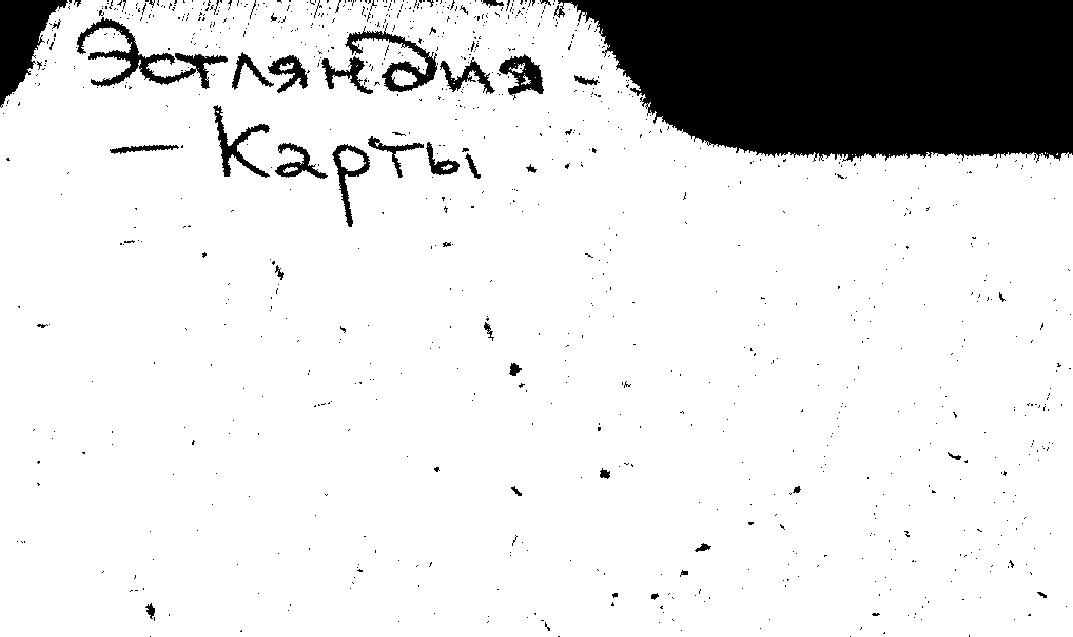 Эстляндия -
- Карты